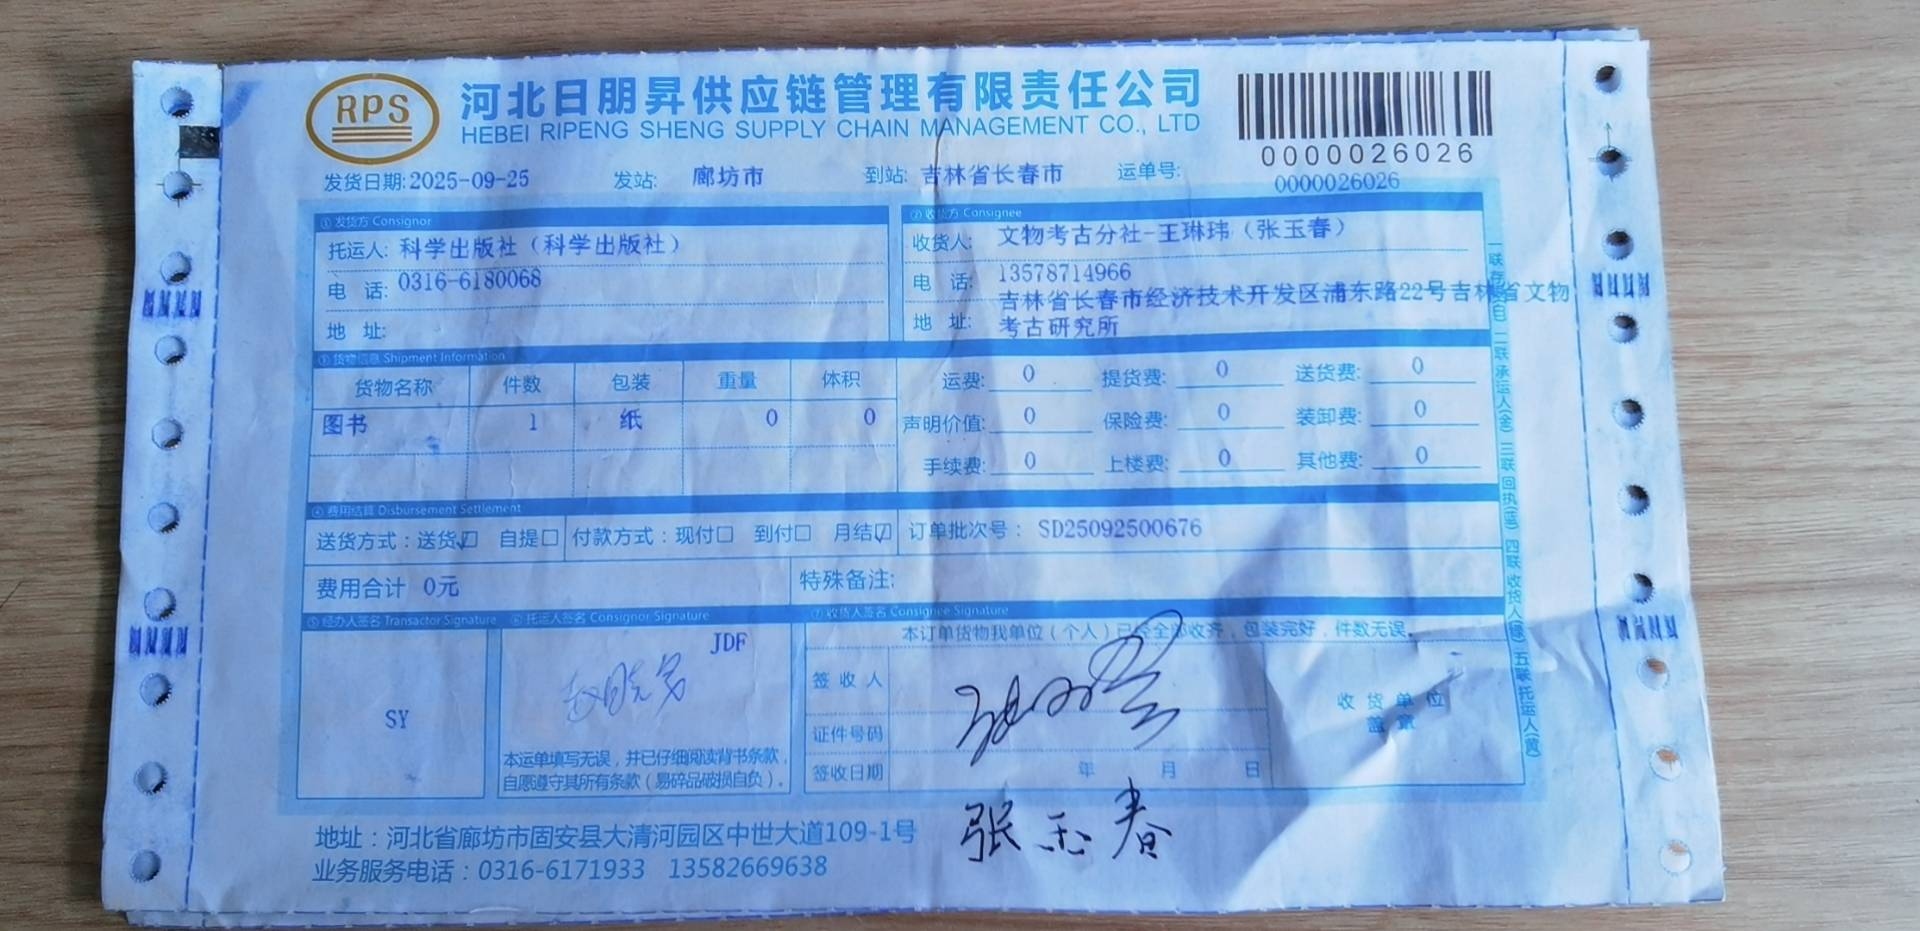 RPS
河北日朋昇供应链管理有限责任公司
HEBEI RIPENG SHENG SUPPLY CHAIN MANAGEMENT CO., LTD
0000026026
发货日期:2025-09-25 发站: 廊坊市 到站: 吉林省长春市 运单号: 0000026026
① 发货方 Consignor
托运人: 科学出版社（科学出版社）
电 话: 0316-6180068
地 址:
② 收货方 Consignee
收货人: 文物考古分社-王琳玮（张玉春）
电 话: 13578714966
地 址: 吉林省长春市经济技术开发区浦东路22号吉林省文物
考古研究所
③ 货物信息 Shipment Information
货物名称 件数 包装 重量 体积
图书 1 纸 0 0
运费: 0 提货费: 0 送货费: 0
声明价值: 0 保险费: 0 装卸费: 0
手续费: 0 上楼费: 0 其他费: 0
④ 费用结算 Disbursement Settlement
送货方式：送货☑ 自提☐ 付款方式：现付☐ 到付☐ 月结☑ 订单批次号： SD25092500676
费用合计 0元 特殊备注:
⑤ 经办人签名 Transactor Signature
SY
⑥ 托运人签名 Consignor Signature
JDF
本运单填写无误，并已仔细阅读背书条款，
自愿遵守其所有条款（易碎品破损自负）。
⑦ 收货人签名 Consignee Signature
本订单货物我单位（个人）已经全部收齐，包装完好，件数无误。
签 收 人
证件号码
签收日期 年 月 日
收 货 单 位
盖 章
张玉春
地址：河北省廊坊市固安县大清河园区中世大道109-1号
业务服务电话：0316-6171933 13582669638
二联承运人(金) 三联回执(蓝) 四联收货人(绿) 五联托运人(黄)